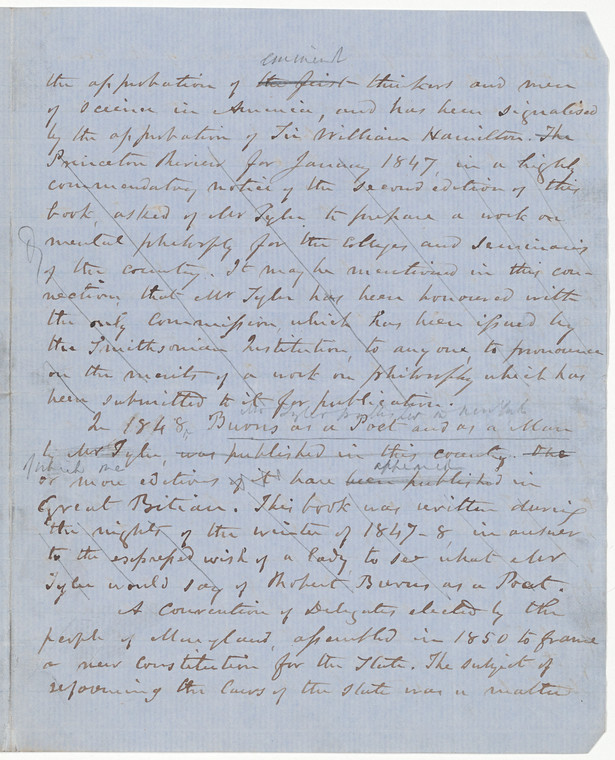 eminent
the approbation of the first thinkers and men
of science in America, and has been signalised
by the approbation of Sir William Hamilton. The
Princeton Review for January 1847, in a highly
commendatory notice of the second edition of this
book, asked of Mr Tyler to prepare a work on
mental philosophy for the Colleges and Seminaries
of the country. It may be mentioned in this con-
nection, that Mr Tyler has been honoured with
the only Commission, which has been issued by
the Smithsonian Institution, to any one, to pronounce
on the merits of a work on philosophy which has
been submitted to it for publication.
Mr Tyler published in New York
In 1848, Burns as a Poet and as a Man
by Mr Tyler, was published in this country. One
of which one appeared
or more editions of it have been published in
Great Britian. This book was written during
the nights of the winter of 1847-8, in answer
to the expressed wish of a lady, to see what Mr
Tyler would say of Robert Burns as a Poet.
A Convention of Delegates elected by the
people of Maryland, assembled in 1850 to frame
a new Constitution for the State. The subject of
reforming the laws of the state was a matter